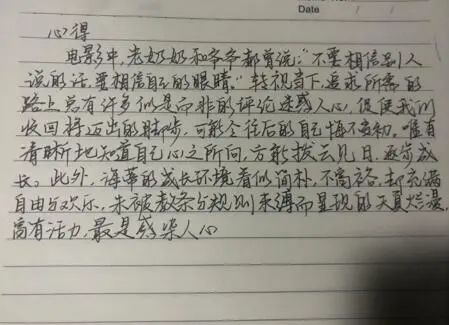 心得
电影中,老奶奶和爷爷都曾说:"不要相信别人
说的话,要相信自己的眼睛。"转视当下,追求所需的
路上总有许多似是而非的评论迷惑人心,促使我们
收回将迈出的脚步,可能令往后的自己悔不当初,唯有
清晰地知道自己心之所向,方能拨云见日,逐步成
长。此外,海蒂的成长环境看似简朴,不富裕,却充满
自由与欢乐,未被教条与规则束缚而呈现的天真烂漫,
富有活力,最是感染人心
Date